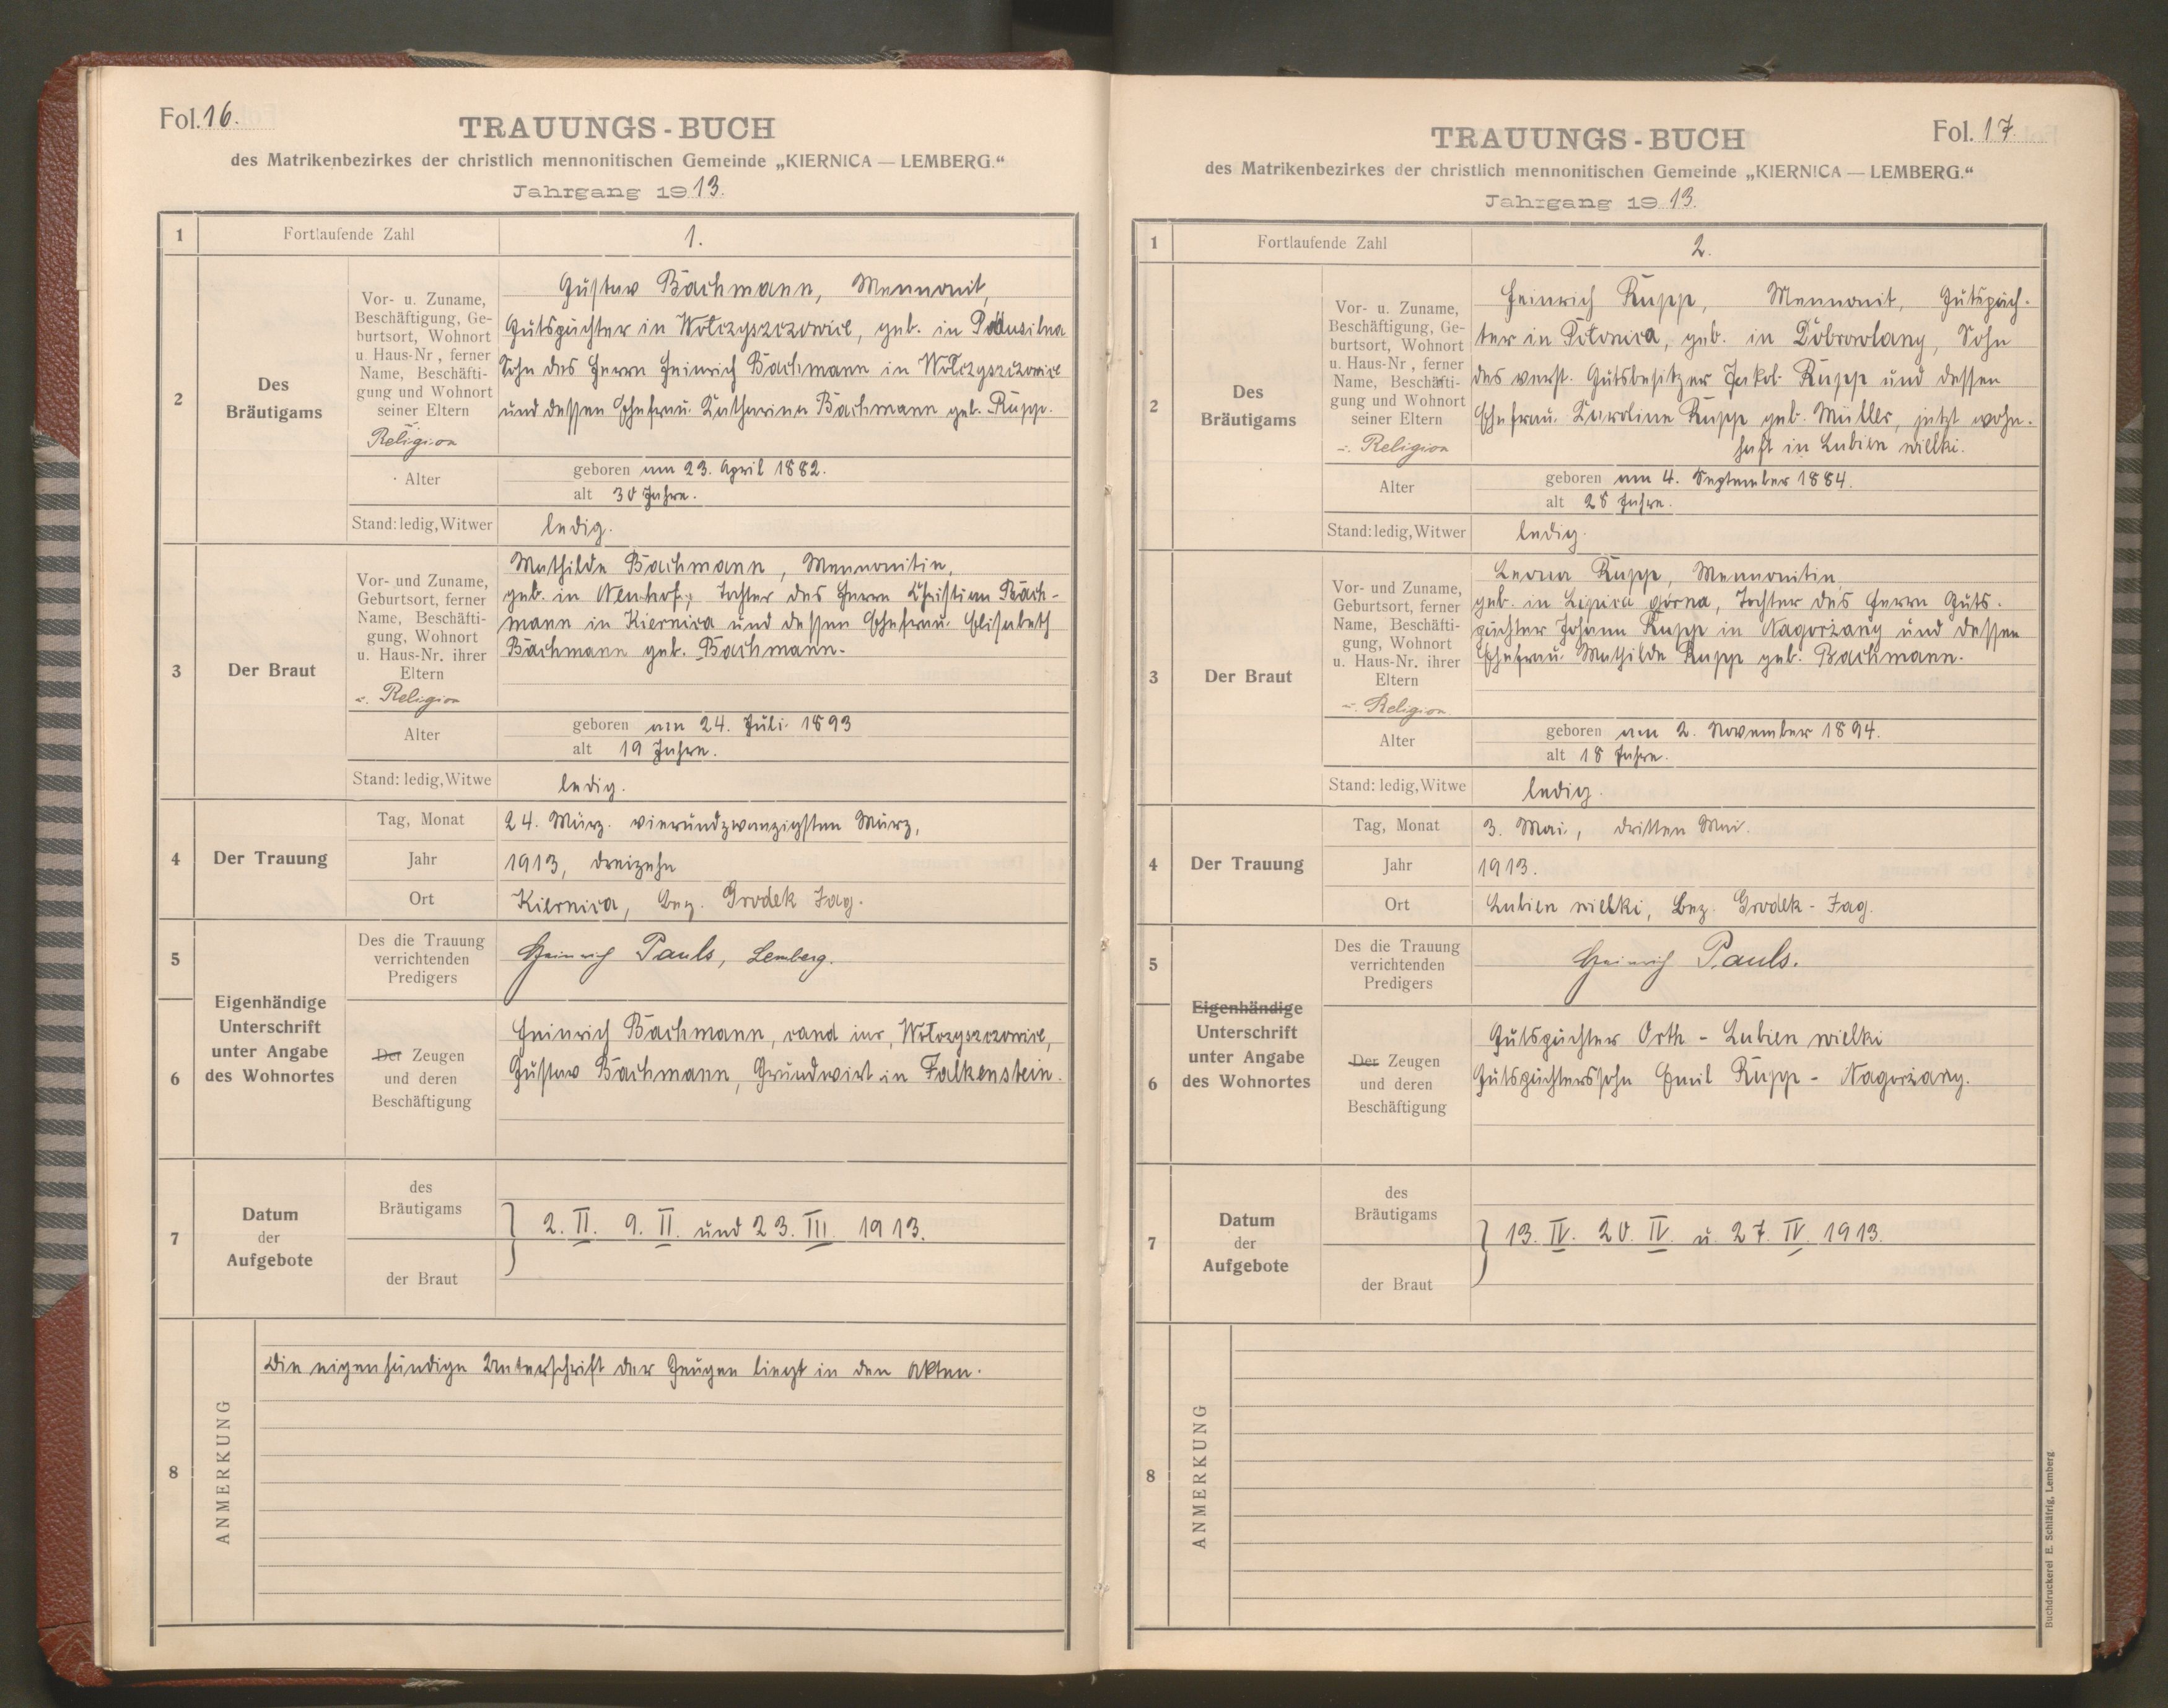 Fol. 16.
TRAUUNGS-BUCH
des Matrikenbezirkes der christlich mennonitischen Gemeinde „KIERNICA — LEMBERG.“
Jahrgang 1913.
1 Fortlaufende Zahl 1.
2 Des Bräutigams
Vor- u. Zuname,
Beschäftigung, Ge-
burtsort, Wohnort
u. Haus-Nr, ferner
Name, Beschäfti-
gung und Wohnort
seiner Eltern
u. Religion
Gustav Bachmann, Mennonit,
Gutspächter in Wołczyszczowice, geb. in Podusilna
Sohn des Herrn Heinrich Bachmann in Wołczyszczowice
und dessen Ehefrau Katharina Bachmann geb. Rupp.
Alter
geboren am 23. April 1882.
alt 30 Jahre.
Stand: ledig, Witwer ledig.
3 Der Braut
Vor- und Zuname,
Geburtsort, ferner
Name, Beschäfti-
gung, Wohnort
u. Haus-Nr. ihrer
Eltern
u. Religion
Mathilde Bachmann, Mennonitin,
geb. in Neuhof, Tochter des Herrn Christian Bach-
mann in Kiernica und dessen Ehefrau Elisabeth
Bachmann geb. Bachmann.
Alter
geboren am 24. Juli 1893
alt 19 Jahre.
Stand: ledig, Witwe ledig.
4 Der Trauung
Tag, Monat 24. März. vierundzwanzigsten März,
Jahr 1913, dreizehn
Ort Kiernica, Bez. Grodek Jag.
5
Eigenhändige
Unterschrift
unter Angabe
des Wohnortes
Des die Trauung
verrichtenden
Predigers
Heinrich Pauls, Lemberg.
6
Der Zeugen
und deren
Beschäftigung
Heinrich Bachmann, cand iur, Wołczyszczowice,
Gustav Bachmann, Grundwirt in Falkenstein.
7
Datum
der
Aufgebote
des
Bräutigams
der Braut
2. II. 9. II. und 23. III. 1913.
8 ANMERKUNG
Die eigenhändige Unterschrift der Zeugen liegt in den Akten.
Fol. 17
TRAUUNGS-BUCH
des Matrikenbezirkes der christlich mennonitischen Gemeinde „KIERNICA — LEMBERG.“
Jahrgang 1913.
1 Fortlaufende Zahl 2.
2 Des Bräutigams
Vor- u. Zuname,
Beschäftigung, Ge-
burtsort, Wohnort
u. Haus-Nr, ferner
Name, Beschäfti-
gung und Wohnort
seiner Eltern
u. Religion
Heinrich Rupp, Mennonit, Gutspäch-
ter in Połonica, geb. in Dobrowlany, Sohn
des verst. Gutsbesitzer Jakob Rupp und dessen
Ehefrau Karoline Rupp geb. Müller, jetzt wohn-
haft in Lubien wielki.
Alter
geboren am 4. September 1884.
alt 28 Jahre.
Stand: ledig, Witwer ledig.
3 Der Braut
Vor- und Zuname,
Geburtsort, ferner
Name, Beschäfti-
gung, Wohnort
u. Haus-Nr. ihrer
Eltern
u. Religion
Leona Rupp, Mennonitin,
geb. in Lipica górna, Tochter des Herrn Guts-
pächter Johann Rupp in Nagorzany und dessen
Ehefrau Mathilde Rupp geb. Bachmann.
Alter
geboren am 2. November 1894.
alt 18 Jahre.
Stand: ledig, Witwe ledig.
4 Der Trauung
Tag, Monat 3. Mai, dritten Mai.
Jahr 1913.
Ort Lubien wielki, Bez. Grodek-Jag.
5
Eigenhändige
Unterschrift
unter Angabe
des Wohnortes
Des die Trauung
verrichtenden
Predigers
Heinrich Pauls.
6
Der Zeugen
und deren
Beschäftigung
Gutspächter Orth - Lubien wielki
Gutspächterssohn Emil Rupp - Nagorzany.
7
Datum
der
Aufgebote
des
Bräutigams
der Braut
13. IV. 20. IV. u. 27. IV. 1913.
8 ANMERKUNG
Buchdruckerei E. Schläfrig, Lemberg